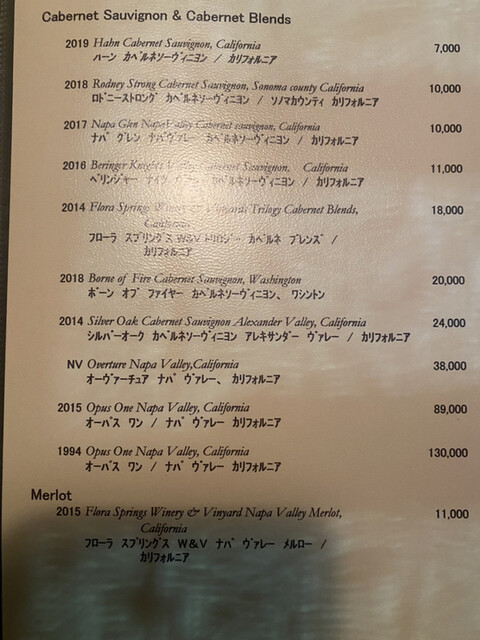 Cabernet Sauvignon & Cabernet Blends
2019 Hahn Cabernet Sauvignon, California 7,000
ハーン カベルネソーヴィニヨン / カリフォルニア
2018 Rodney Strong Cabernet Sauvignon, Sonoma county California 10,000
ロドニーストロング カベルネソーヴィニヨン / ソノマカウンティ カリフォルニア
2017 Napa Glen Napa Valley Cabernet sauvignon, California 10,000
ナパ グレン ナパヴァレー カベルネソーヴィニヨン / カリフォルニア
2016 Beringer Knights Valley Cabernet Sauvignon, California 11,000
ベリンジャー ナイツ カベルネソーヴィニヨン / カリフォルニア
2014 Flora Springs Winery & Vinyard Trilogy Cabernet Blends, 18,000
California
フローラ スプリングス W&V トリロジー カベルネ ブレンズ /
カリフォルニア
2018 Borne of Fire Cabernet Sauvignon, Washington 20,000
ボーン オブ ファイヤー カベルネソーヴィニヨン、 ワシントン
2014 Silver Oak Cabernet Sauvignon Alexander Valley, California 24,000
シルバーオーク カベルネソーヴィニヨン アレキサンダー ヴァレー / カリフォルニア
NV Overture Napa Valley,California 38,000
オーヴァーチュア ナパ ヴァレー、 カリフォルニア
2015 Opus One Napa Valley, California 89,000
オーパス ワン / ナパ ヴァレー カリフォルニア
1994 Opus One Napa Valley, California 130,000
オーパス ワン / ナパ ヴァレー カリフォルニア
Merlot
2015 Flora Springs Winery & Vinyard Napa Valley Merlot, 11,000
California
フローラ スプリングス W&V ナパ ヴァレー メルロー /
カリフォルニア